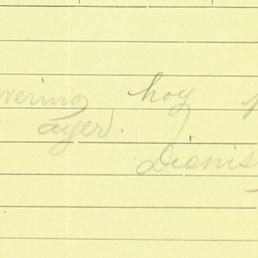 vering hoy
ayer.
Dionis